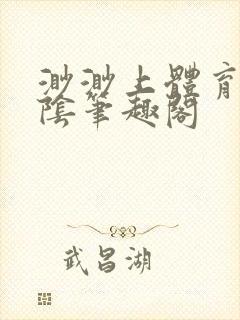 渺渺上體育
陰筆趣閣
武昌湖